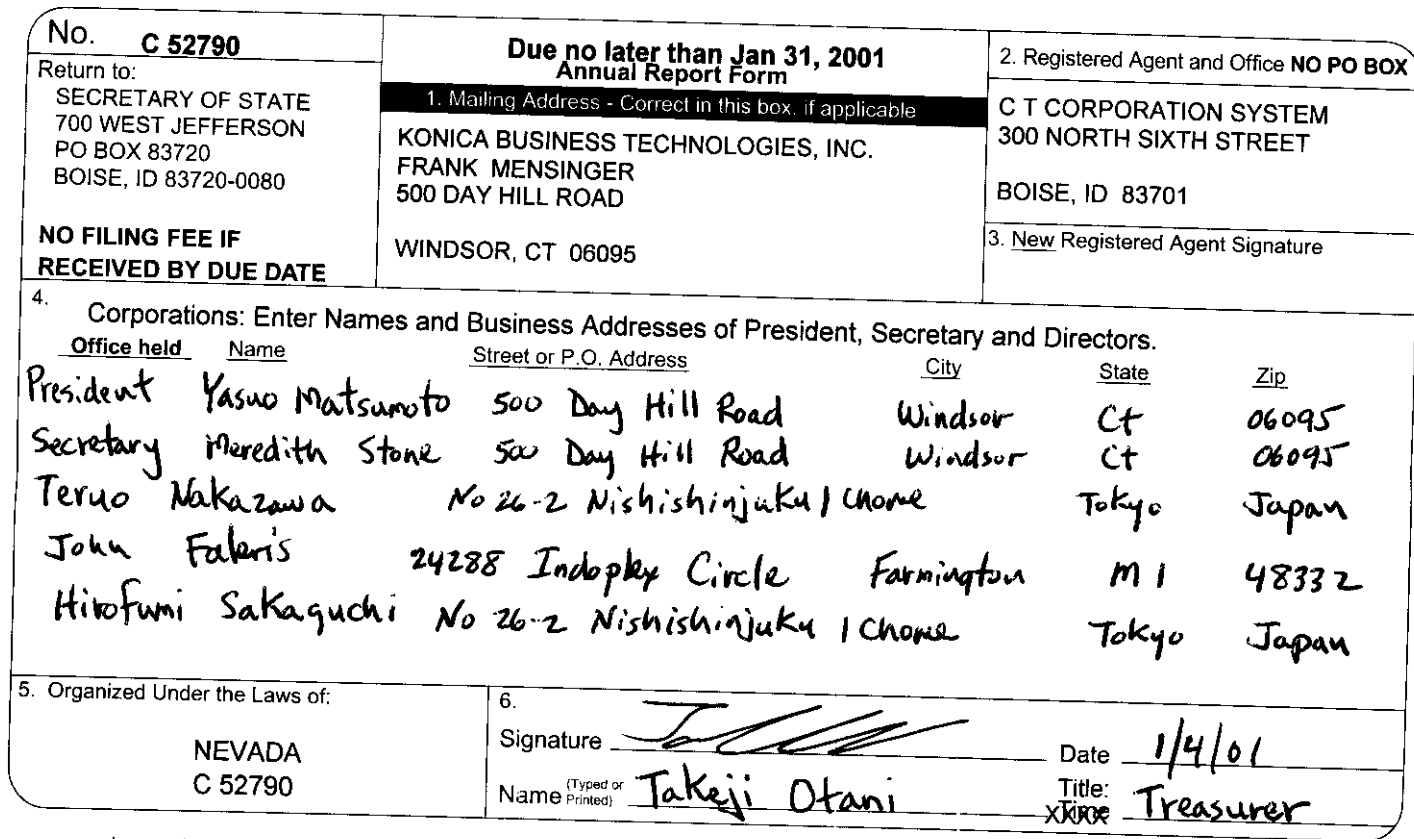 No. C 52790
Return to:
SECRETARY OF STATE
700 WEST JEFFERSON
PO BOX 83720
BOISE, ID 83720-0080
NO FILING FEE IF
RECEIVED BY DUE DATE
Due no later than Jan 31, 2001
Annual Report Form
1. Mailing Address - Correct in this box, if applicable
KONICA BUSINESS TECHNOLOGIES, INC.
FRANK MENSINGER
500 DAY HILL ROAD
WINDSOR, CT 06095
2. Registered Agent and Office NO PO BOX
C T CORPORATION SYSTEM
300 NORTH SIXTH STREET
BOISE, ID 83701
3. New Registered Agent Signature
4. Corporations: Enter Names and Business Addresses of President, Secretary and Directors.
Office held Name Street or P.O. Address City State Zip
President Yasuo Matsumoto 500 Day Hill Road Windsor Ct 06095
Secretary Meredith Stone 500 Day Hill Road Windsor Ct 06095
Teruo Nakazawa No 26-2 Nishishinjuku 1 Chome Tokyo Japan
John 24288 Circle Farmington MI 48332
Hirofumi Sakaguchi No 26-2 Nishishinjuku 1 Chome Tokyo Japan
5. Organized Under the Laws of:
NEVADA
C 52790
6.
Signature Date 1/4/01
Name (Typed or Printed) Takeji Otani Title: Treasurer